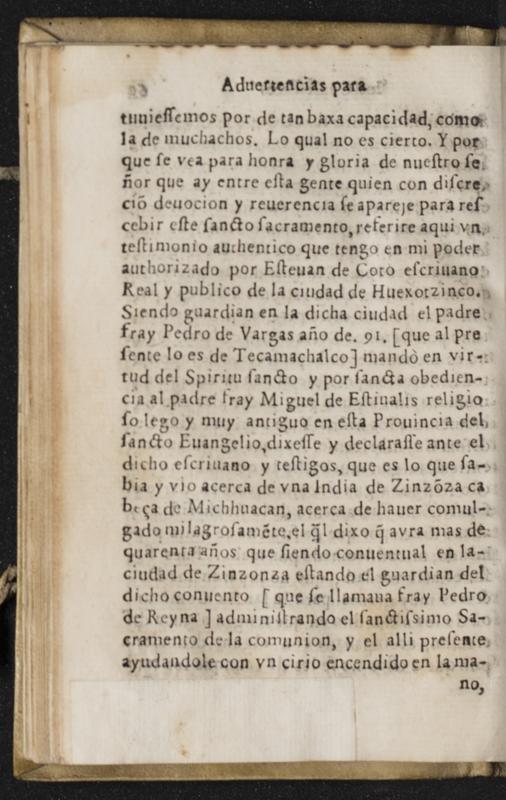 Aduertencias para
tuuieſſemos por de tan baxa capacidad, como
la de muchachos. Lo qual no es cierto. Y por
que ſe vea para honra y gloria de nueſtro ſe
ñor que ay entre eſta gente quien con diſcre
ciõ deuocion y reuerencia ſe apareje para reſ
cebir eſte ſancto ſacramento, referire aqui vn
teſtimonio authentico que tengo en mi poder
authorizado por Eſteuan de Coto eſcriuano
Real y publico de la ciudad de Huexotzinco.
Siendo guardian en la dicha ciudad el padre
fray Pedro de Vargas año de. 91. [que al pre
ſente lo es de Tecamachalco] mandò en vir-
tud del Spiritu ſancto y por ſancta obedien-
cia al padre fray Miguel de Eſtiualis religio
ſo lego y muy antiguo en eſta Prouincia del
ſancto Euangelio, dixeſſe y declaraſſe ante el
dicho eſcriuano y teſtigos, que es lo que ſa-
bia y vio acerca de vna India de Zinzõza ca
beça de Michhuacan, acerca de hauer comul-
gado milagroſamẽte, el q̃l dixo q̃ avra mas de
quarenta años que ſiendo conuentual en la-
ciudad de Zinzonza eſtando el guardian del
dicho conuento [ que ſe llamaua fray Pedro
de Reyna ] adminiſtrando el ſanctiſsimo Sa-
cramento de la comunion, y el alli preſente
ayudandole con vn cirio encendido en la ma-
no,